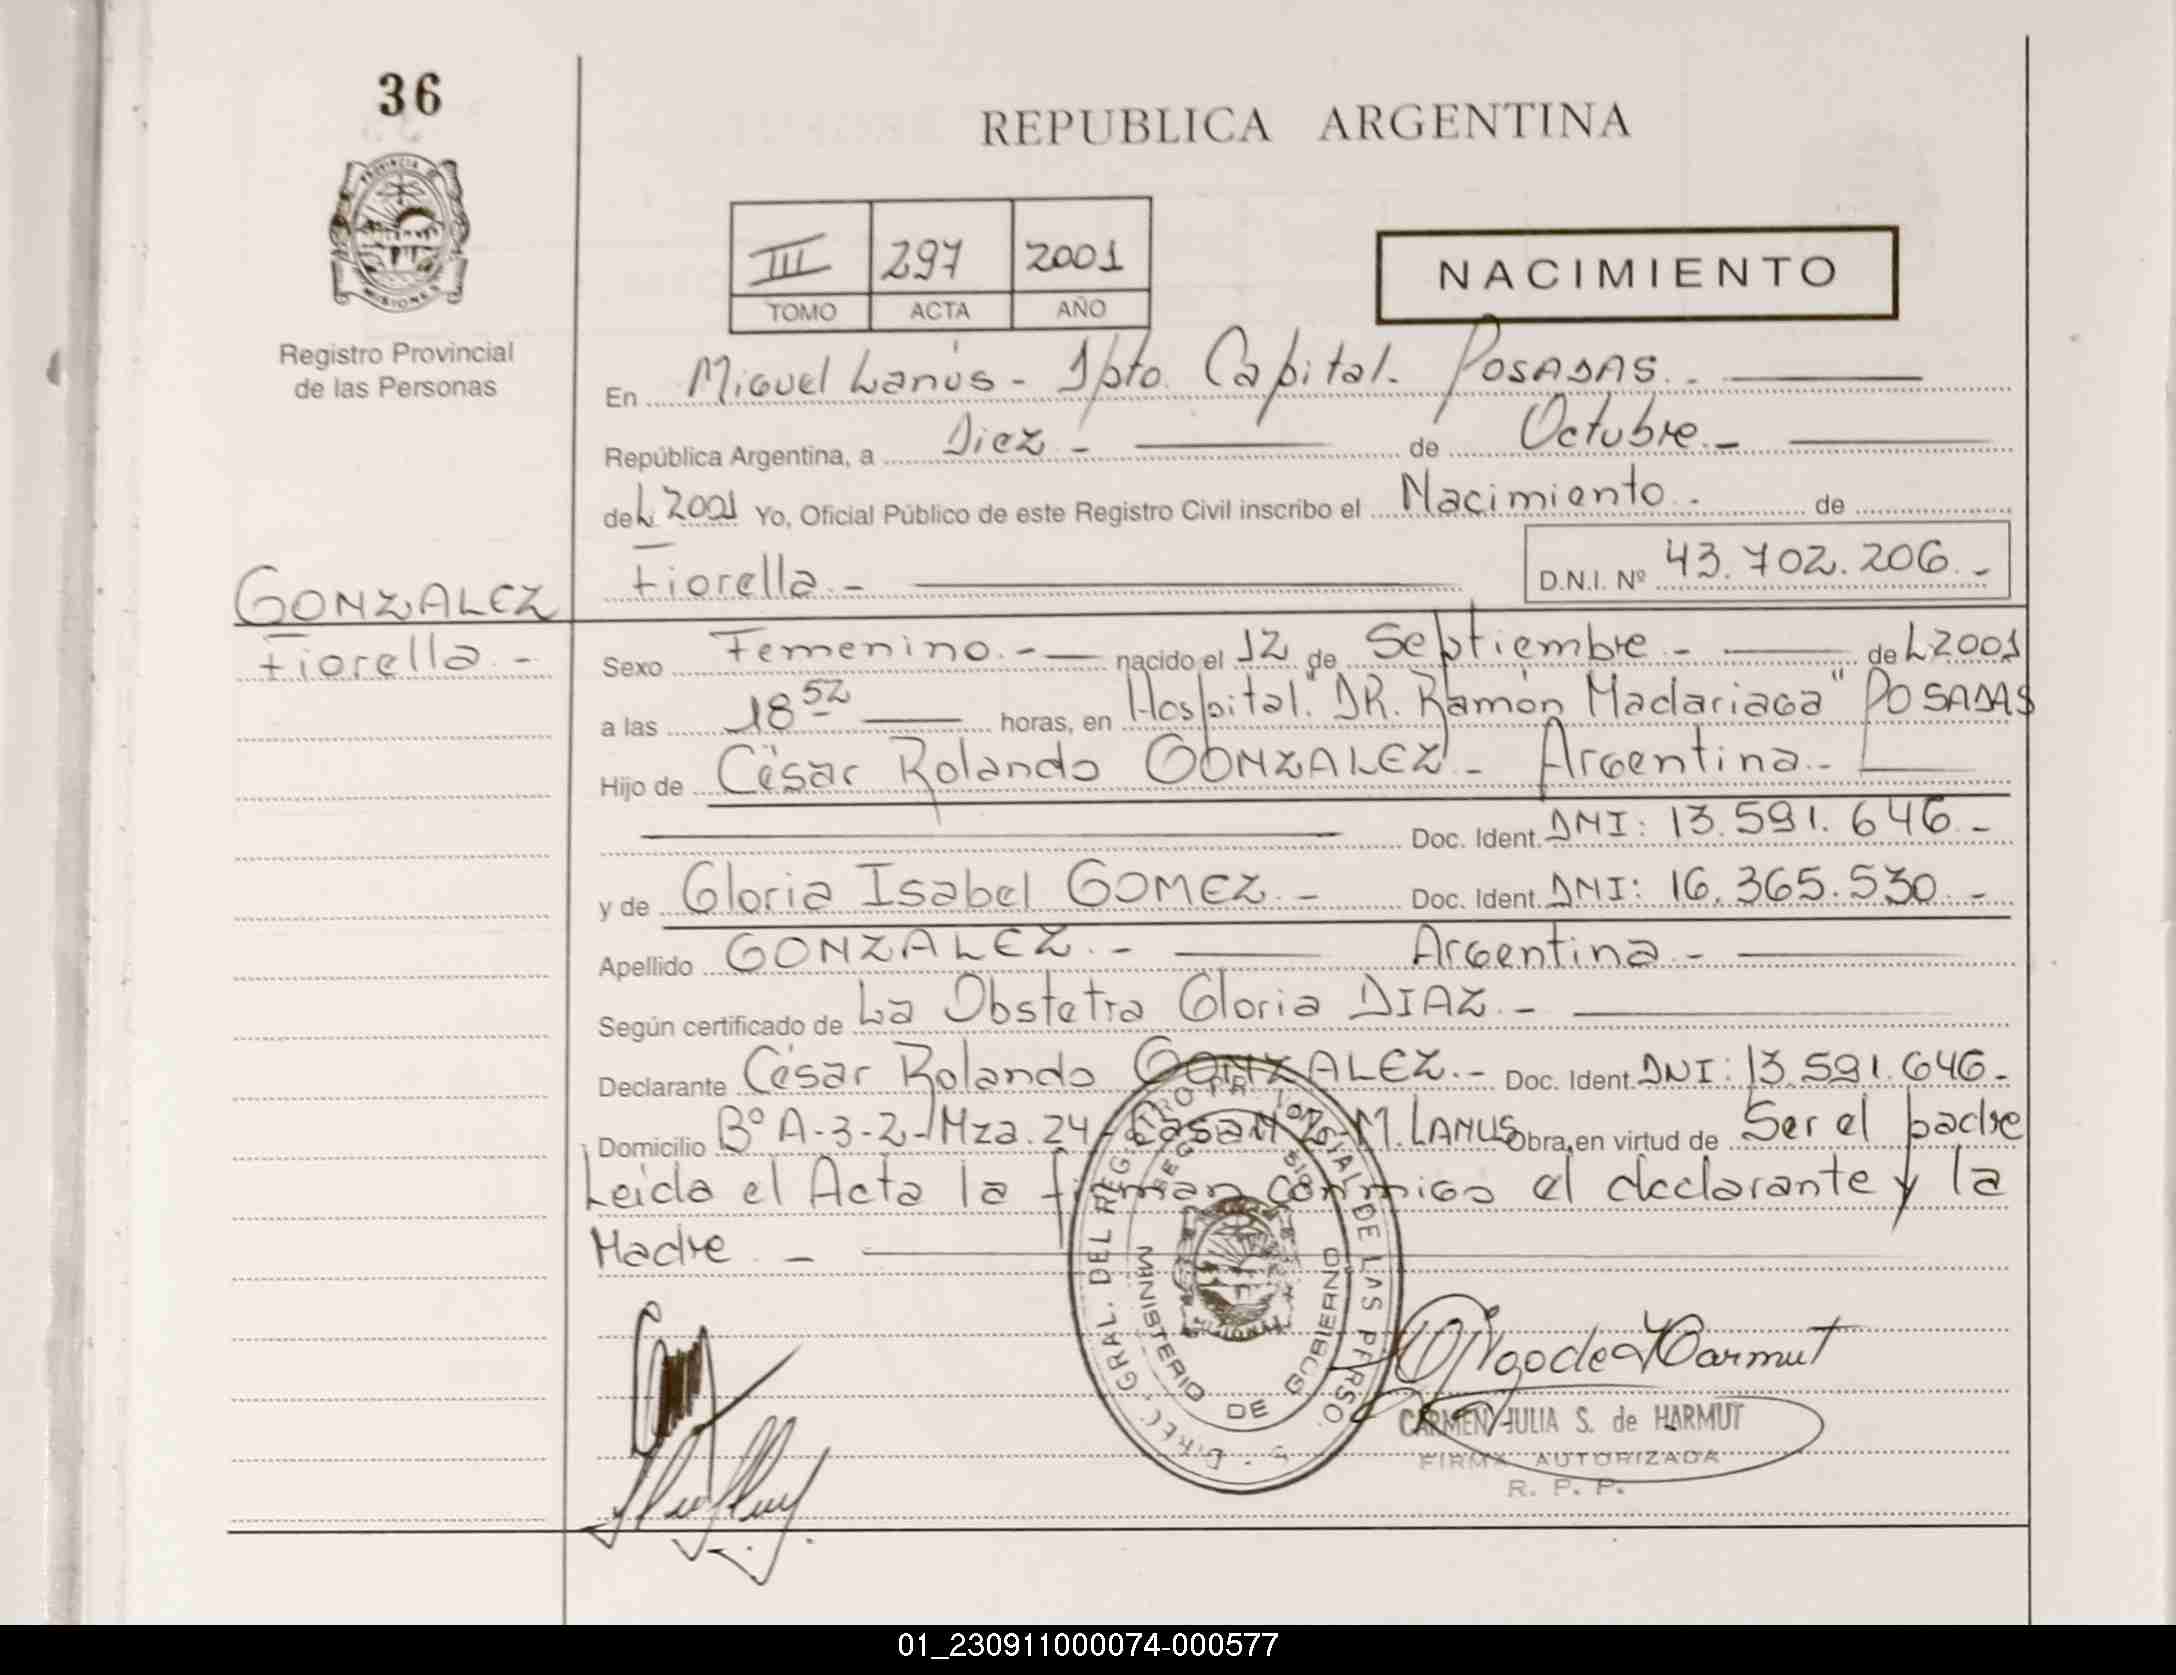 36
REPUBLICA ARGENTINA
PROVINCIA D
MISIONES
Registro Provincial
de las Personas
III 297 2001
TOMO ACTA AÑO
NACIMIENTO
En Miguel Lanús - Dpto. Capital. POSADAS. -
República Argentina, a Diez. - de Octubre. -
deL 2001 Yo, Oficial Público de este Registro Civil inscribo el Nacimiento. - de
Fiorella. - D.N.I. Nº 43.702.206. -
GONZALEZ
Fiorella. -
Sexo Femenino. - nacido el 12 de Septiembre - de L 2001
a las 18 52 horas, en Hospital "DR. Ramón Madariaga" POSADAS
Hijo de César Rolando GONZALEZ - Argentina. -
Doc. Ident. DNI: 13.591.646. -
y de Gloria Isabel GOMEZ. - Doc. Ident. DNI: 16.365.530. -
Apellido GONZALEZ. - Argentina. -
Según certificado de La Obstetra Gloria DIAZ. -
Declarante César Rolando GONZALEZ. - Doc. Ident. DNI: 13.591.646. -
Domicilio Bº A-3-2- Mza. 24 - Casa M. LANUS Obra, en virtud de Ser el padre
Leida el Acta la firman conmigo el declarante y la
Madre. -
DIREC. GRAL. DEL REGISTRO PROVINCIAL DE LAS PERSO
MINISTERIO DE GOBIERNO
CARMEN JULIA S. de HARMUT
FIRMA AUTORIZADA
R. P. P.
01_230911000074-000577